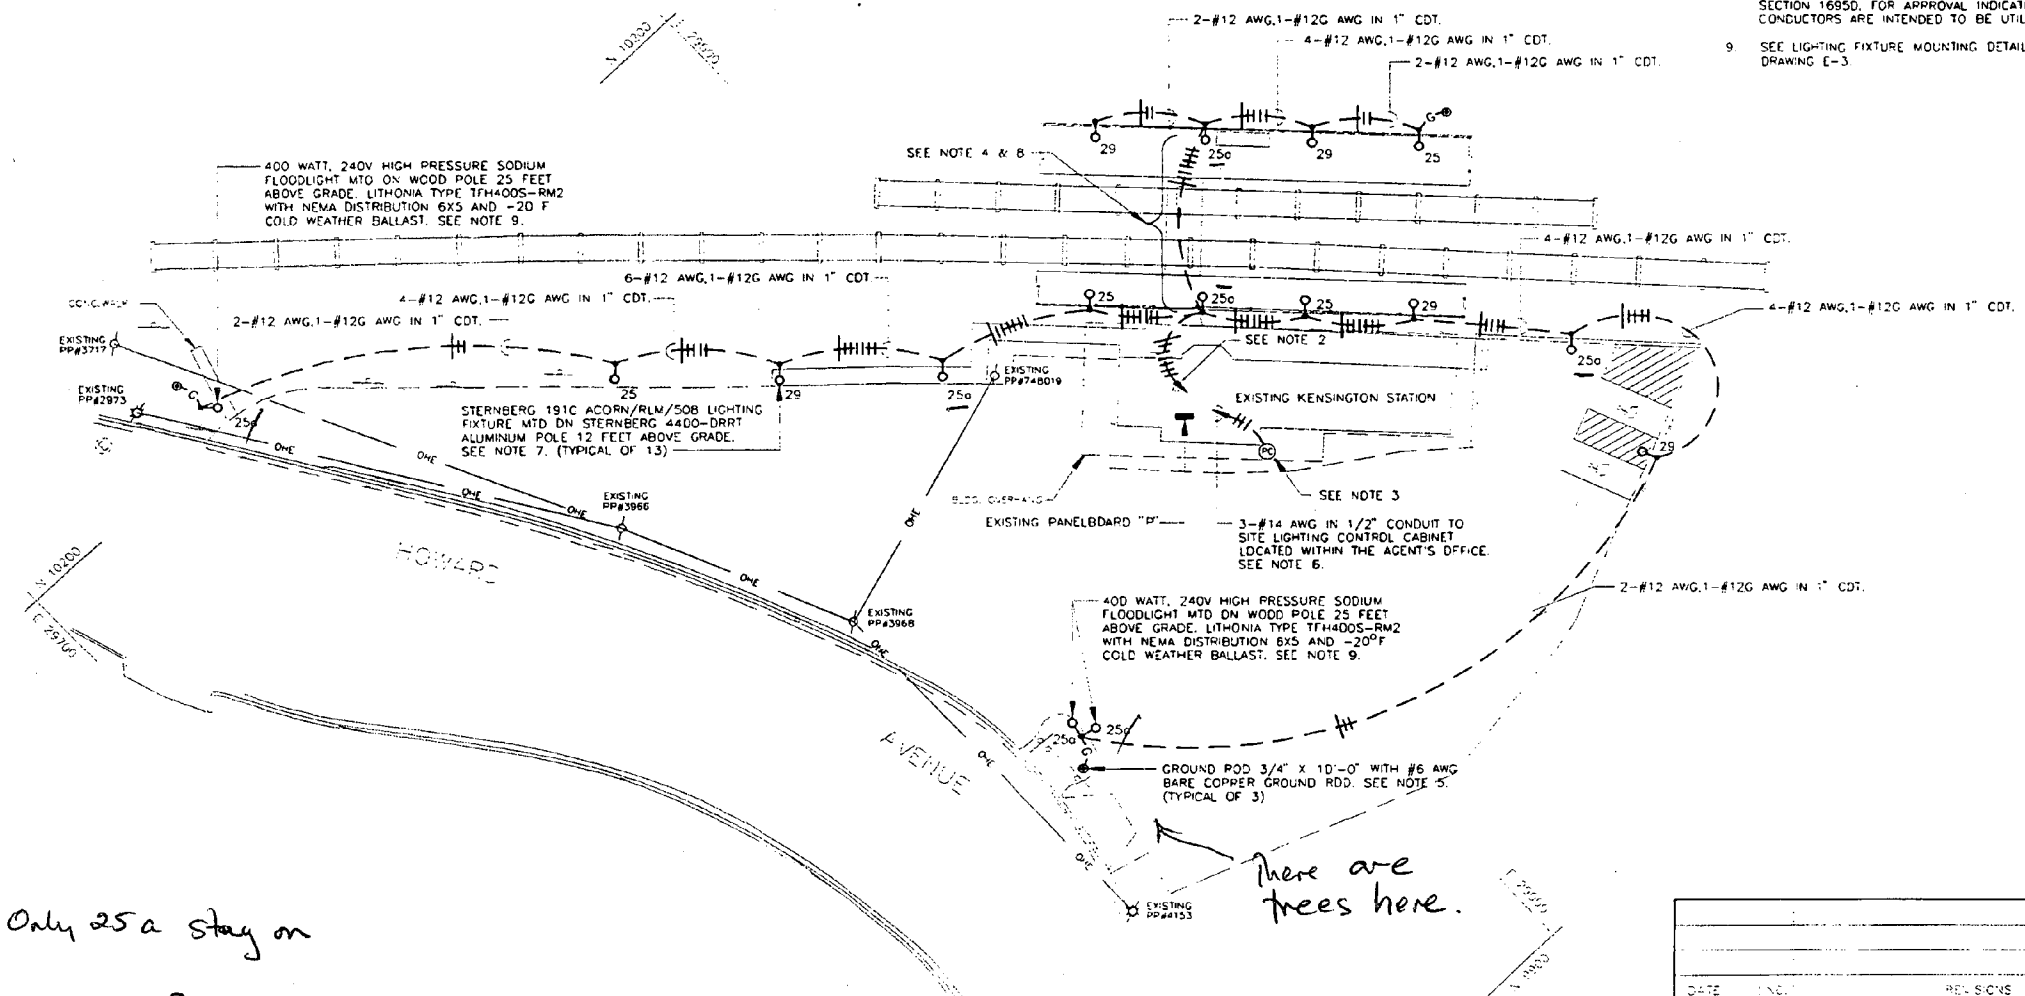 SECTION 16950. FOR APPROVAL INDICATI
CONDUCTORS ARE INTENDED TO BE UTIL
9. SEE LIGHTING FIXTURE MOUNTING DETAIL
DRAWING E-3.
2-#12 AWG,1-#12G AWG IN 1" CDT.
4-#12 AWG,1-#12G AWG IN 1" CDT.
2-#12 AWG,1-#12G AWG IN 1" CDT.
N 10300
G
29
25a
29
25
SEE NOTE 4 & 8
400 WATT, 240V HIGH PRESSURE SODIUM
FLOODLIGHT MTD ON WOOD POLE 25 FEET
ABOVE GRADE. LITHONIA TYPE TFH400S-RM2
WITH NEMA DISTRIBUTION 6X5 AND -20 F
COLD WEATHER BALLAST. SEE NOTE 9.
4-#12 AWG,1-#12G AWG IN 1" CDT.
6-#12 AWG,1-#12G AWG IN 1" CDT.
4-#12 AWG,1-#12G AWG IN 1" CDT.
2-#12 AWG,1-#12G AWG IN 1" CDT.
4-#12 AWG,1-#12G AWG IN 1" CDT.
CONC. WALK
EXISTING
PP#3717
25
25a
25
29
SEE NOTE 2
25a
EXISTING
PP#2973
G
25a
25
29
25a
EXISTING
PP#748019
EXISTING KENSINGTON STATION
HC
HC
29
STERNBERG 191C ACORN/RLM/508 LIGHTING
FIXTURE MTD ON STERNBERG 4400-DRRT
ALUMINUM POLE 12 FEET ABOVE GRADE.
SEE NOTE 7. (TYPICAL OF 13)
PC
OHE
OHE
OHE
OHE
OHE
OHE
OHE
OHE
OHE
OHE
EXISTING
PP#3966
BLDG. OVERHANG
SEE NOTE 3
EXISTING PANELBOARD "P"
3-#14 AWG IN 1/2" CONDUIT TO
SITE LIGHTING CONTROL CABINET
LOCATED WITHIN THE AGENT'S OFFICE.
SEE NOTE 6.
HOWARD
N 10200
E 29700
EXISTING
PP#3968
2-#12 AWG,1-#12G AWG IN 1" CDT.
400 WATT, 240V HIGH PRESSURE SODIUM
FLOODLIGHT MTD ON WOOD POLE 25 FEET
ABOVE GRADE. LITHONIA TYPE TFH400S-RM2
WITH NEMA DISTRIBUTION 6X5 AND -20°F
COLD WEATHER BALLAST. SEE NOTE 9.
25a
25a
G
AVENUE
GROUND ROD 3/4" X 10'-0" WITH #6 AWG
BARE COPPER GROUND ROD. SEE NOTE 5.
(TYPICAL OF 3)
There are
trees here.
EXISTING
PP#4153
Only 25a stay on
DATE
NO.
REVISIONS